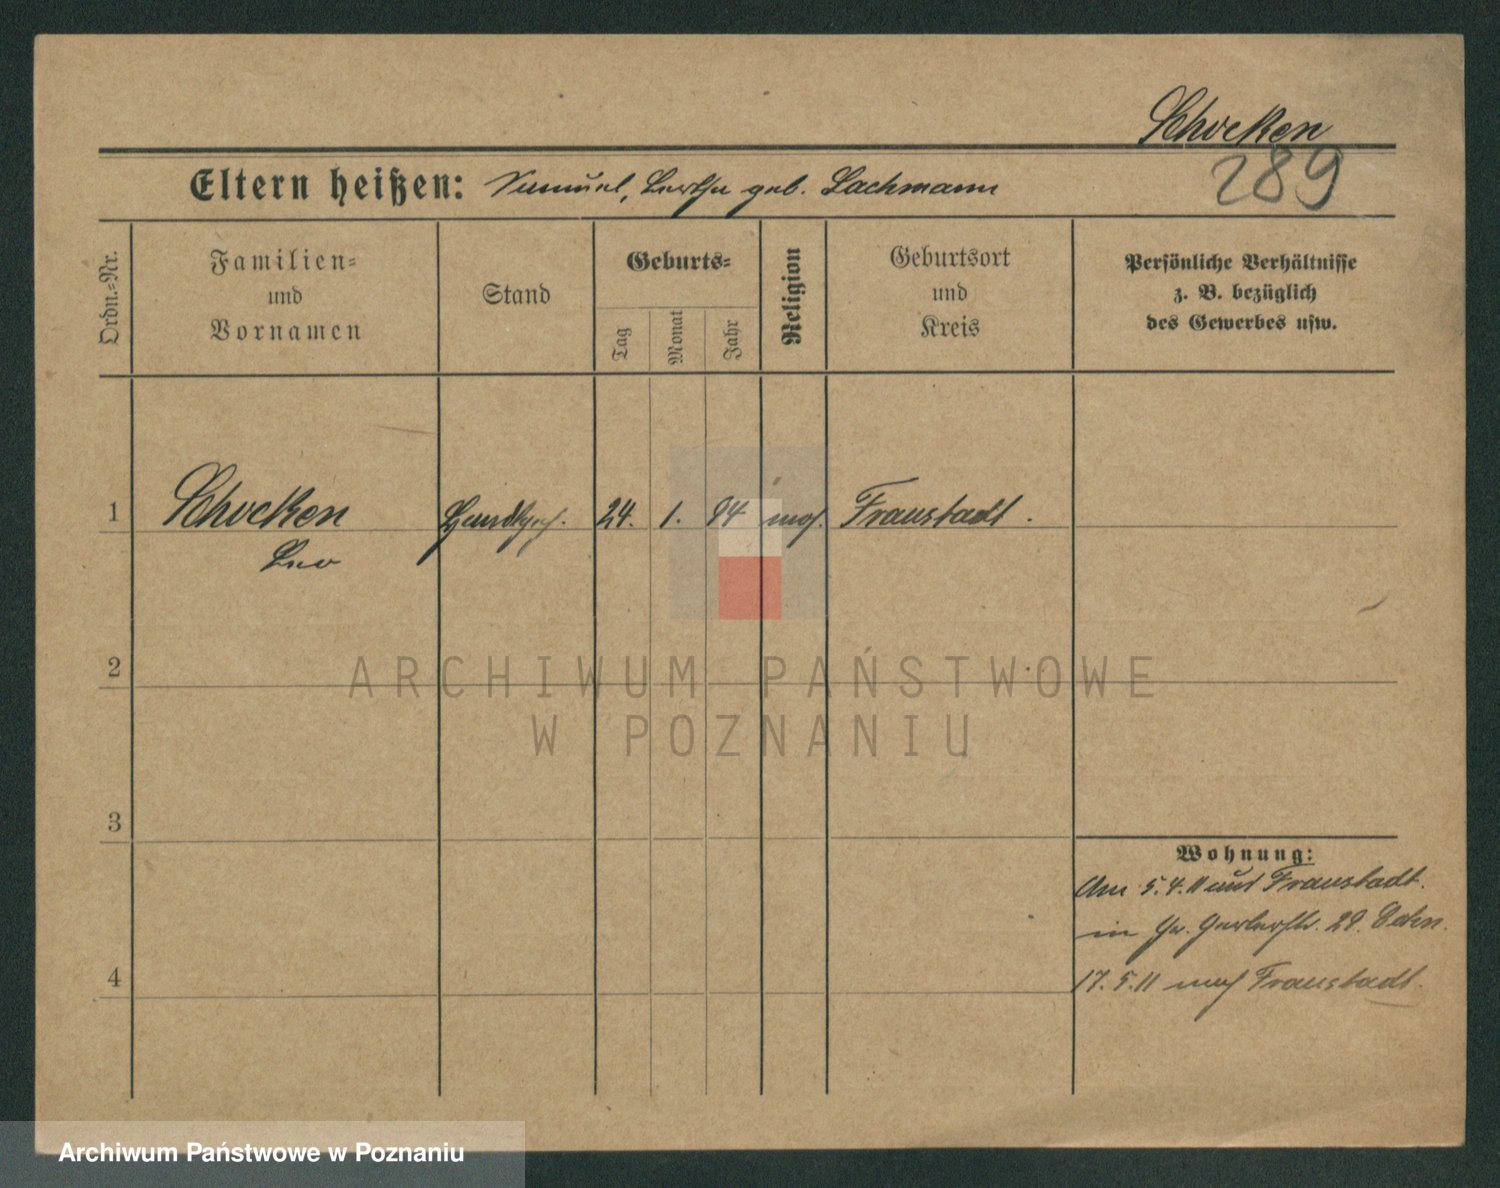 Schocken
289
Eltern heißen: Samuel, Bertha geb. Lachmann
Ordn.=Nr.
Familien=
und
Vornamen
Stand
Geburts=
Tag
Monat
Jahr
Religion
Geburtsort
und
Kreis
Persönliche Verhältnisse
z. B. bezüglich
des Gewerbes usw.
1 Schocken Handlgsg. 24. 1. 94 mos. Fraustadt.
Leo
2
ARCHIWUM PAŃSTWOWE
W POZNANIU
3
Wohnung:
Am 5.4.11 aus Fraustadt.
in Gr. Gerberstr. 28.
4
17.5.11 nach Fraustadt.
Archiwum Państwowe w Poznaniu